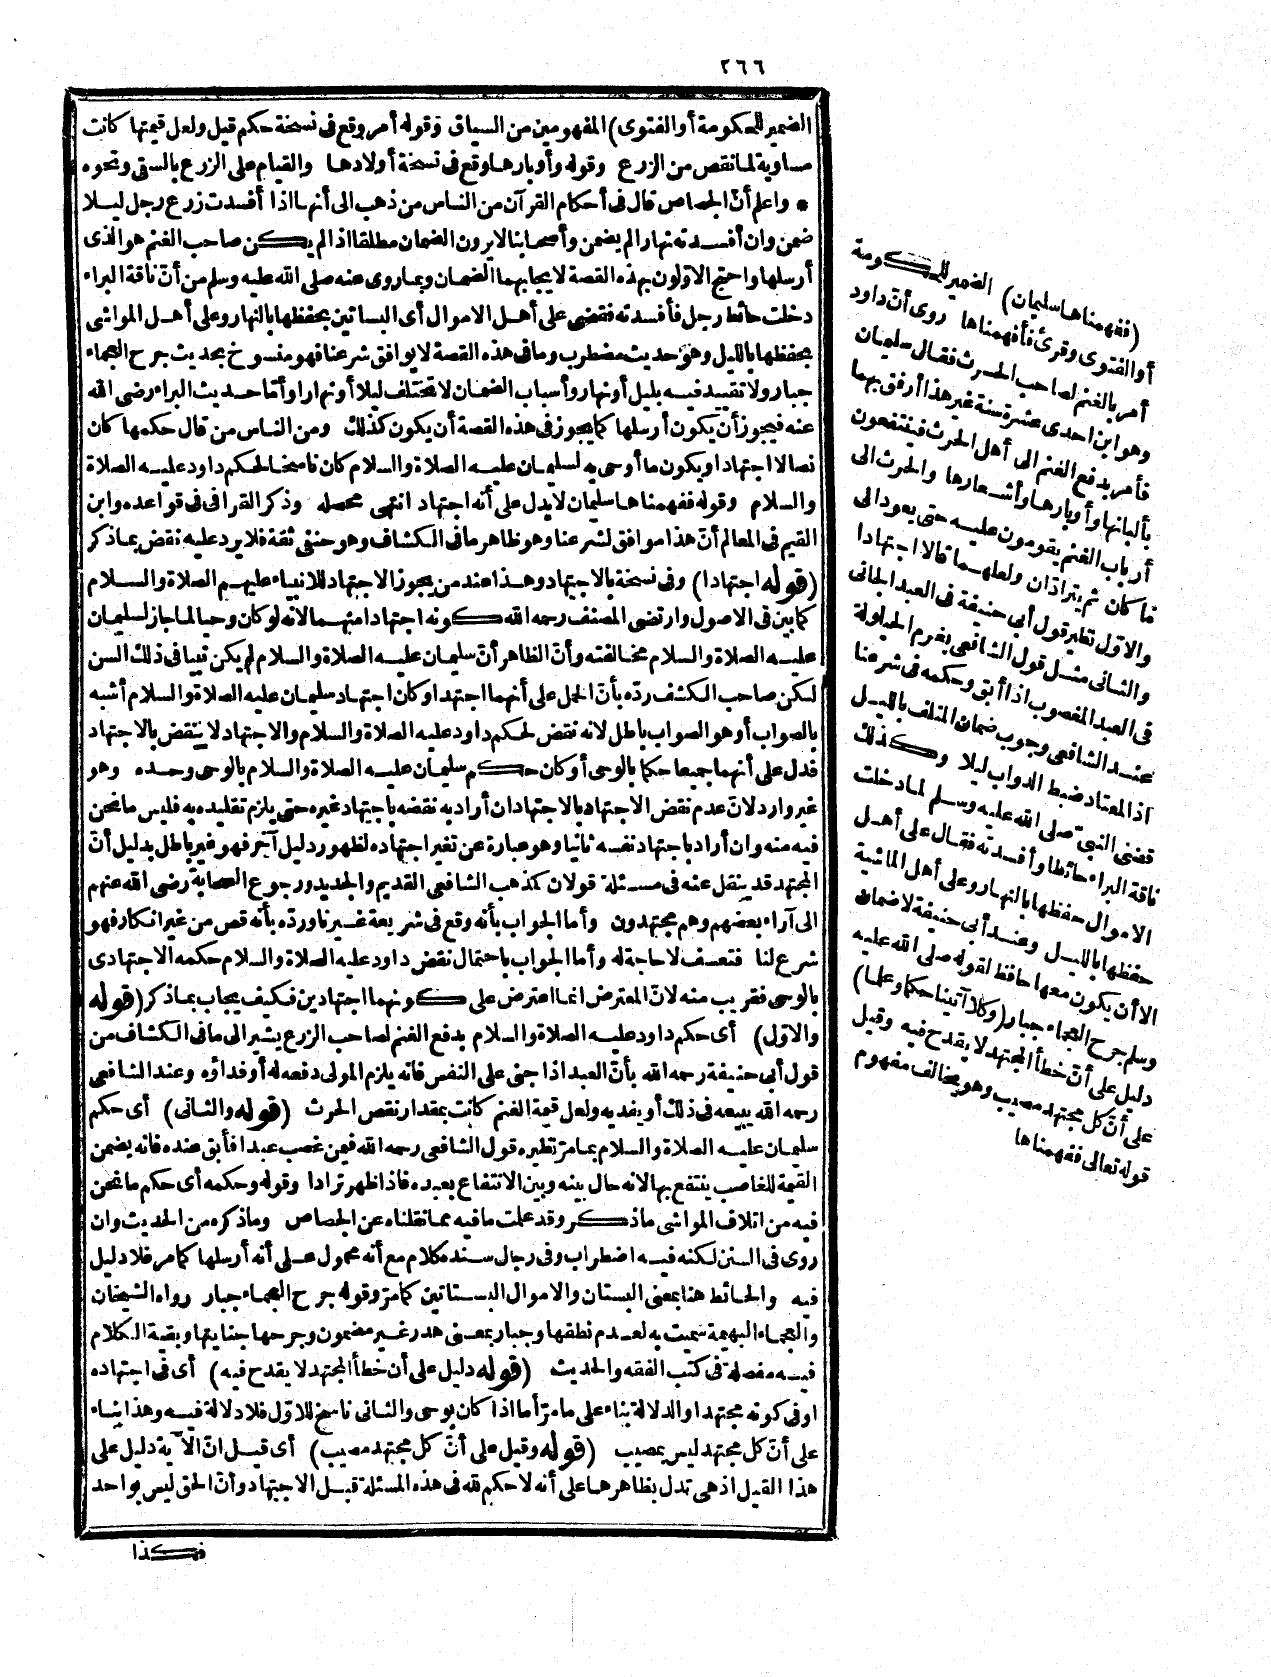 ٢٦٦
الضمير للحكومة أو الفتوى) المفهومين من السياق وقوله أمر وقع فى نسخة حكم قيل ولعل قيمتها كانت
مساوية لما نقص من الزرع وقوله وأوبارها وقع فى نسخة أولادها والقيام على الزرع بالسقى ونحوه
* واعلم أنّ الجصاص قال فى أحكام القرآن من الناس من ذهب الى أنها اذا أفسدت زرع رجل ليلا
ضمن وان أفسدته نهارا لم يضمن وأصحابنا لا يرون الضمان مطلقا اذا لم يكن صاحب الغنم هو الذى
أرسلها واحتج الاوّلون بهذه القصة لايجابهما الضمان وبماروى عنه صلى الله عليه وسلم من أنّ ناقة البراء
دخلت حائط رجل فأفسدته فقضى على أهل الاموال أى البساتين بحفظها بالنهار وعلى أهل المواشى
بحفظها بالليل وهو حديث مضطرب وما فى هذه القصة لا يوافق شرعنا فهو منسوخ بحديث جرح العجماء
جبار ولا تقييد فيه بليل أو نهار وأسباب الضمان لا تختلف ليلا أو نهارا وأمّا حديث البراء رضى الله
عنه فيجوز أن يكون أرسلها كما يجوز فى هذه القصة أن يكون كذلك ومن الناس من قال حكمها كان
نصا لا اجتهادا ويكون ما أوحى به لسليمان عليه الصلاة والسلام كان ناسخا لحكم داود عليه الصلاة
والسلام وقوله ففهمناها سليمان لا يدل على أنه اجتهاد انتهى محصله وذكر القرافى فى قواعده وابن
القيم فى المعالم أنّ هذا موافق لشرعنا وهو ظاهر ما فى الكشاف وهو حنفى ثقة فلا يرد عليه نقض بما ذكر
(قوله اجتهادا) وفى نسخة بالاجتهاد وهذا عند من يجوز الاجتهاد للانبياء عليهم الصلاة والسلام
كما بين فى الاصول وارتضى المصنف رحمه الله كونه اجتهادا منهما لانه لو كان وحيا لما جاز لسليمان
عليه الصلاة والسلام مخالفته وأنّ الظاهر أنّ سليمان عليه الصلاة والسلام لم يكن نبيا فى ذلك السن
لكن صاحب الكشف ردّه بأنّ الحمل على أنهما اجتهدا وكان اجتهاد سليمان عليه الصلاة والسلام أشبه
بالصواب أو هو الصواب باطل لانه نقض لحكم داود عليه الصلاة والسلام والاجتهاد لا ينقض بالاجتهاد
فدل على أنهما جميعا حكما بالوحى أو كان حكم سليمان عليه الصلاة والسلام بالوحى وحده وهو
غير وارد لانّ عدم نقض الاجتهاد بالاجتهاد ان أراد به نقضه باجتهاد غيره حتى يلزم تقليده به فليس ما نحن
فيه منه وان أراد باجتهاد نفسه ثانيا وهو عبارة عن تغير اجتهاده لظهور دليل آخر فهو غير باطل بدليل أنّ
المجتهد قد ينقل عنه فى مسئلة قولان كمذهب الشافعى القديم والجديد ورجوع الصحابة رضى الله عنهم
الى آراء بعضهم وهم مجتهدون وأما الجواب بأنه وقع فى شريعة غيرنا ورده بأنه قص من غير انكار فهو
شرع لنا فتعسف لا حاجة له وأما الجواب باحتمال نقض داود عليه الصلاة والسلام حكمه الاجتهادى
بالوحى فقريب منه لانّ المعترض انما اعترض على كونهما اجتهادين فكيف يجاب بما ذكر (قوله
والاوّل) أى حكم داود عليه الصلاة والسلام بدفع الغنم لصاحب الزرع يشير الى ما فى الكشاف من
قول أبى حنيفة رحمه الله بأنّ العبد اذا جنى على النفس فانه يلزم المولى دفعه له أو فداؤه وعند الشافعى
رحمه الله يبيعه فى ذلك أو يفديه ولعل قيمة الغنم كانت بمقدار نقص الحرث (قوله والثانى) أى حكم
سليمان عليه الصلاة والسلام بما مرّ نظيره قول الشافعى رحمه الله فيمن غصب عبدا فأبق عنده فانه يضمن
القيمة للغاصب ينتفع بها لانه حال بينه وبين الانتفاع بعبده فاذا ظهر ترادا وقوله وحكمه أى حكم ما نحن
فيه من اتلاف المواشى ما ذكر وقد علمت ما فيه مما نقلناه عن الجصاص وما ذكره من الحديث وان
روى فى السنن لكنه فيه اضطراب وفى رجال سنده كلام مع أنه محمول على أنه أرسلها كما مر فلا دليل
فيه والحائط هنا بمعنى البستان والاموال البساتين كما مرّ وقوله جرح العجماء جبار رواه الشيخان
والعجماء البهيمة سميت به لعدم نطقها وجبار بمعنى هدر غير مضمون وجرحها جنايتها وبقية الكلام
فيه مفصلة فى كتب الفقه والحديث (قوله دليل على أن خطأ المجتهد لا يقدح فيه) أى فى اجتهاده
أو فى كونه مجتهدا والدلالة بناء على ما مرّ أما اذا كان بوحى والثانى ناسخ للاوّل فلا دلالة فيه وهذا بناء
على أنّ كل مجتهد ليس بمصيب (قوله وقيل على أنّ كل مجتهد مصيب) أى قيل انّ الآية دليل على
هذا القيل اذ هى تدل بظاهرها على أنه لا حكم لله فى هذه المسئلة قبل الاجتهاد وأنّ الحق ليس بواحد
فهكذا
(ففهمناها سليمان) الضمير للحكومة
أو الفتوى وقرئ فأفهمناها روى أنّ داود
أمر بالغنم لصاحب الحرث فقال سليمان
وهو ابن احدى عشرة سنة غير هذا أرفق بهما
فأمر بدفع الغنم الى أهل الحرث فينتفعون
بألبانها وأوبارها وأشعارها والحرث الى
أرباب الغنم يقومون عليه حتى يعود الى
ما كان ثم يترادّان ولعلهما قالا اجتهادا
والاوّل نظير قول أبى حنيفة فى العبد الجانى
والثانى مثل قول الشافعى بغرم الحيلولة
فى العبد المغصوب اذا أبق وحكمه فى شرعنا
عند الشافعى وجوب ضمان المتلف بالليل
اذ المعتاد ضبط الدواب ليلا وكذلك
قضى النبىّ صلى الله عليه وسلم لما دخلت
ناقة البراء حائطا وأفسدته فقال على أهل
الاموال حفظها بالنهار وعلى أهل الماشية
حفظها بالليل وعند أبى حنيفة لا ضمان
الا أن يكون معها حافظ لقوله صلى الله عليه
وسلم جرح العجماء جبار (وكلا آتينا حكما وعلما)
دليل على أنّ خطأ المجتهد لا يقدح فيه وقيل
على أنّ كل مجتهد مصيب وهو يخالف مفهوم
قوله تعالى ففهمناها